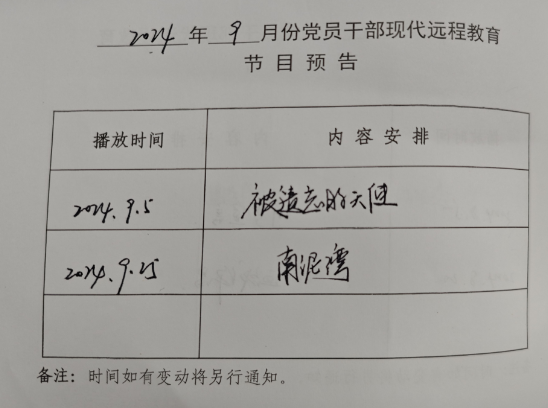 2024年9月份党员干部现代远程教育
节目预告
播放时间 内容安排
2024.9.5 被遗忘的天使
2024.9.25 南泥湾
备注：时间如有变动将另行通知。